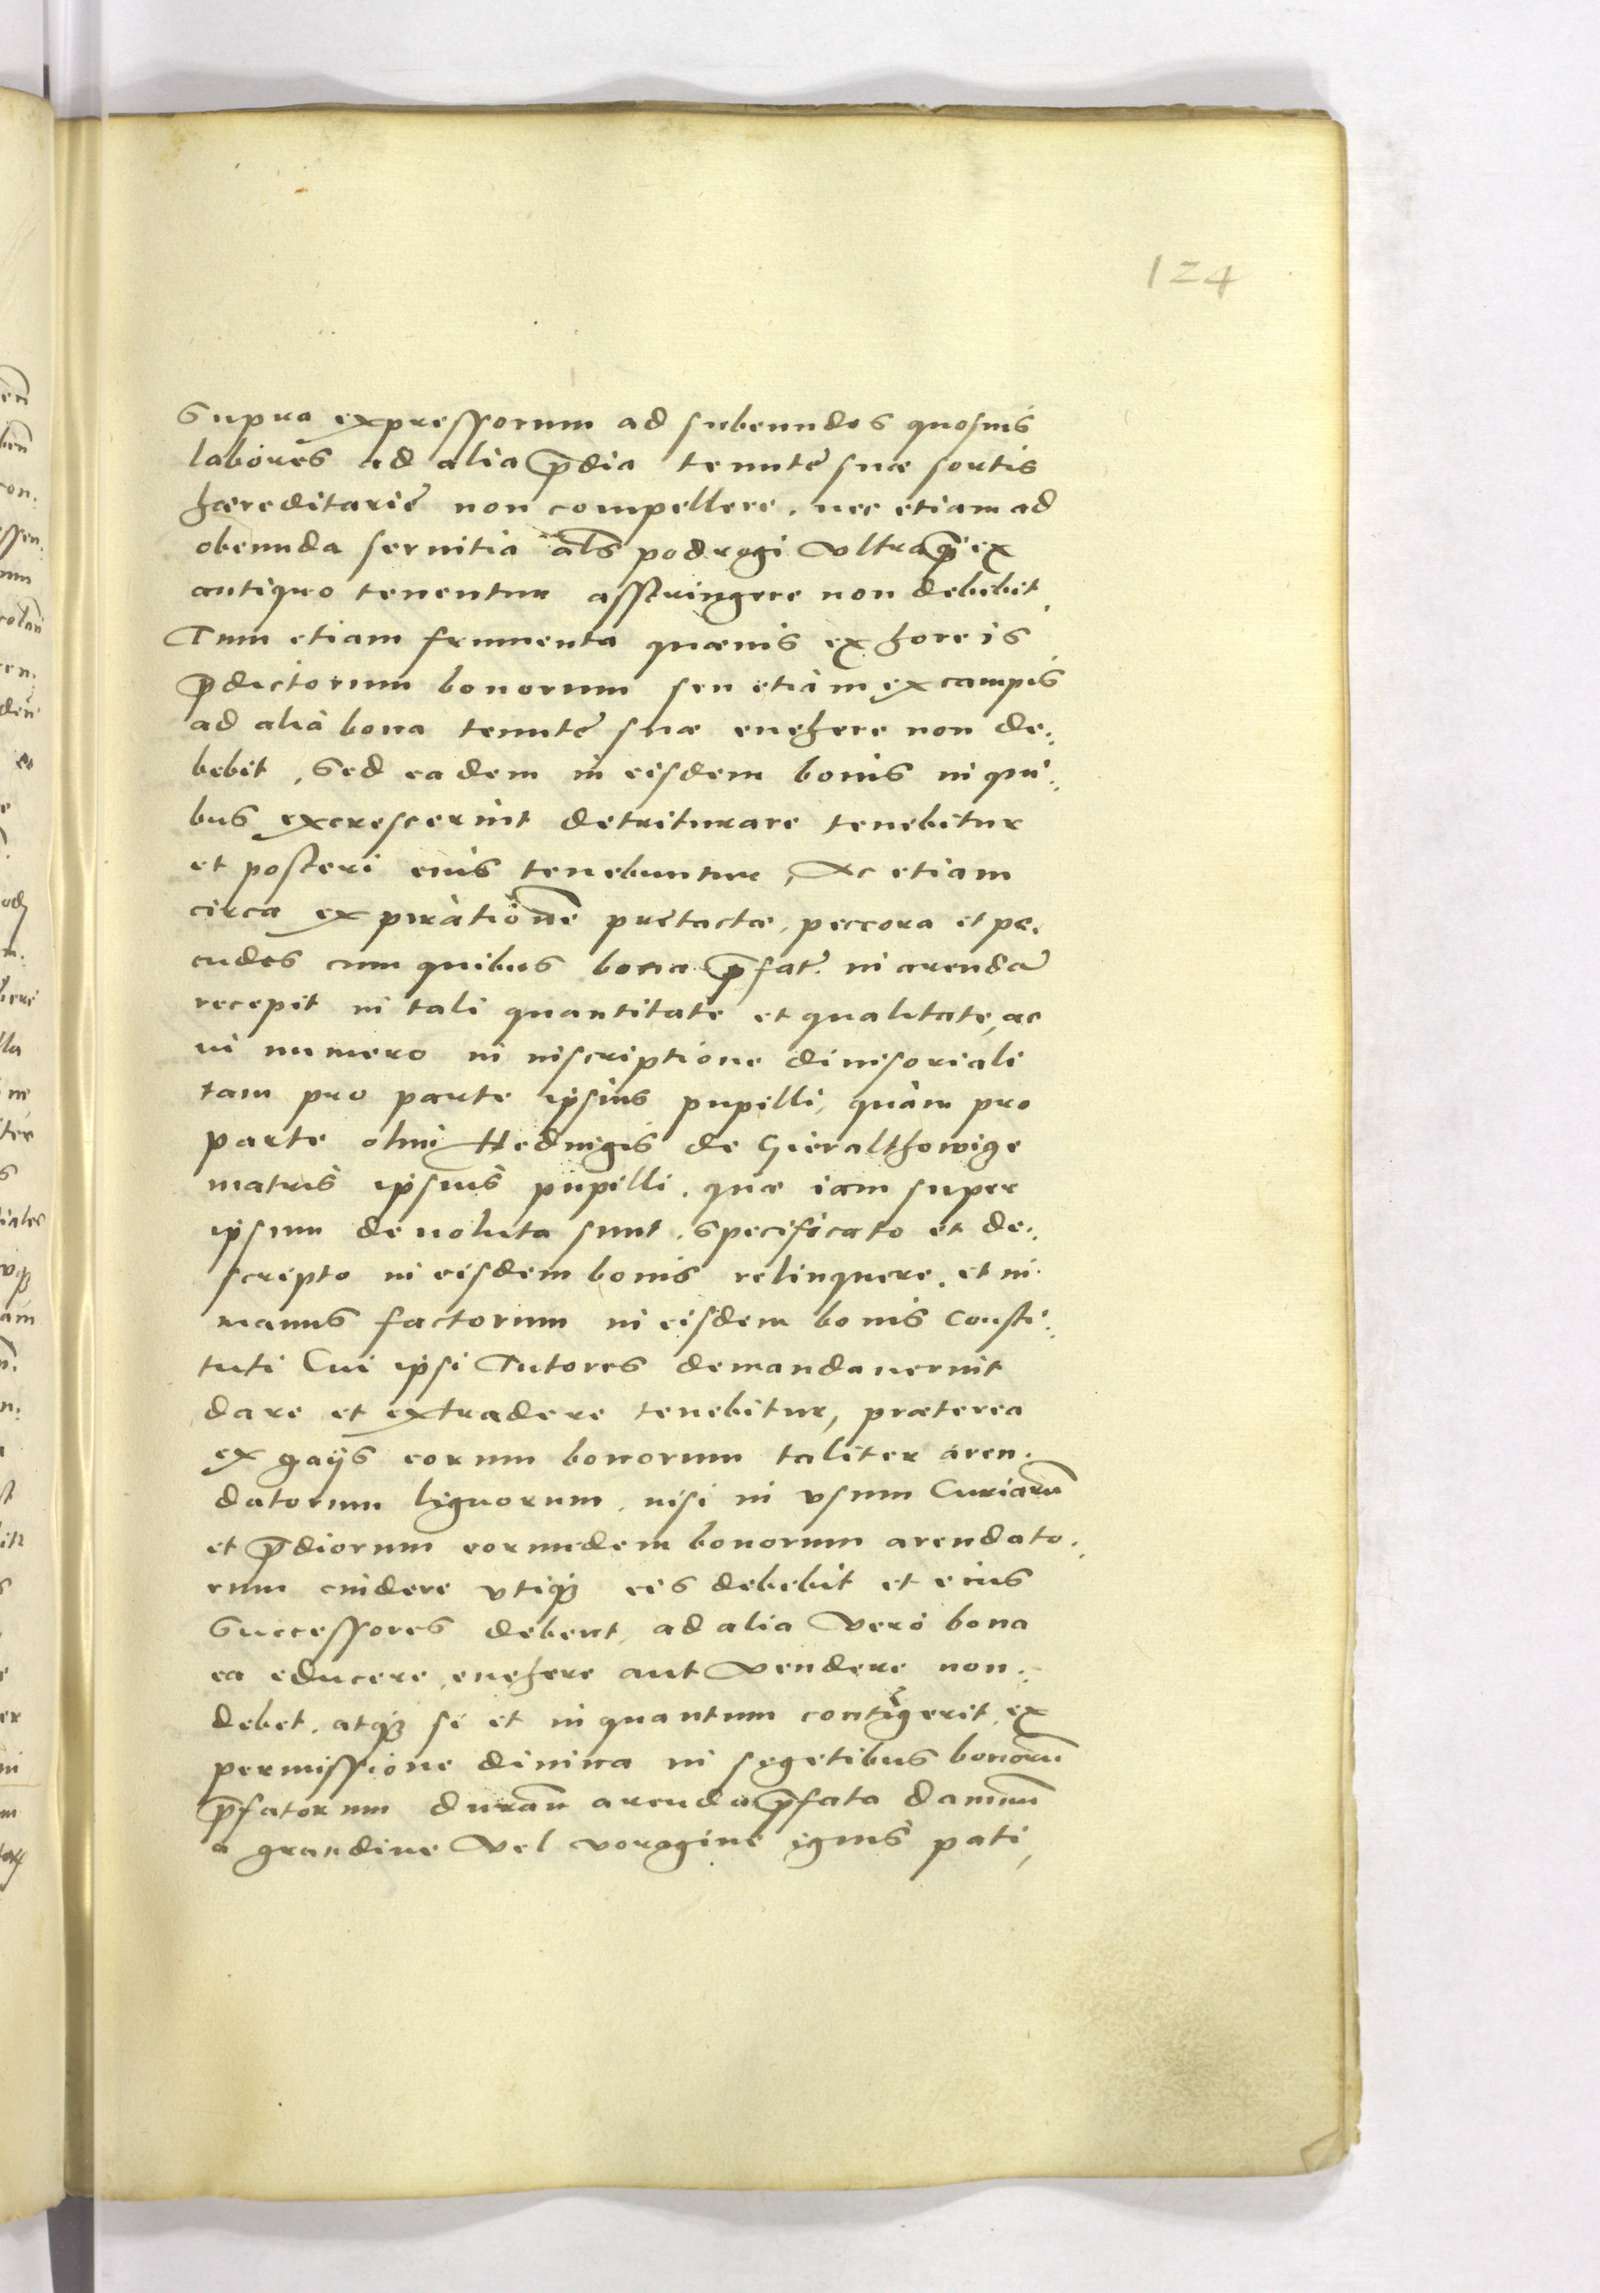 124
Supra expressorum ad subeundos quosuis
labores ad alia p̄dia tenute suae sortis
haereditarie non compellere. nec etiam ad
obeunda seruitia als podrogi vltra q̄ ex
antiquo tenentur asstringere non debebit.
Tum etiam frumenta quaeuis ex horeis
p̄dictorum bonorum seu etiam ex campis
ad alia bona tenute suae euehere non de:
bebit, Sed eadem in eisdem bonis in qui:
bus excrescerint detriturare tenebitur
et posteri eius tenebuntur, Ac etiam
circa expirationē pretactae, peccora et pe.
cudes cum quibus bona p̄fat. in arendā
recepit in tali quantitate et qualitate, ac
in numero in inscriptione diuisoriali
tam pro parte ipsius pupilli, quàm pro
parte olim Heduigis de Gieralthowicze
matris ipsius pupilli. quae iam super
ipsum deuoluta sunt. specificato et de:
scripto in eisdem bonis relinquere. et in
manus factorum in eisdem bonis consti:
tuti Cui ipsi Tutores demandauerint
dare et extradere tenebitur, praeterea
ex gaijs eorum bonorum taliter aren:
datorum lignorum, nisi in vsum Curiarū
et p̄diorum eorundem bonorum arendato:
rum cindere vtiqꝫ eis debebit et eius
Successores debent, ad alia vero bona
ea educere, euehere aut vendere non:
debet. atqꝫ si et in quantum contigerit, ex
permissione diuina in segetibus bonorū
p̄fatorum durań arenda p̄fata damnū
a grandine vel voragine ignis pati,